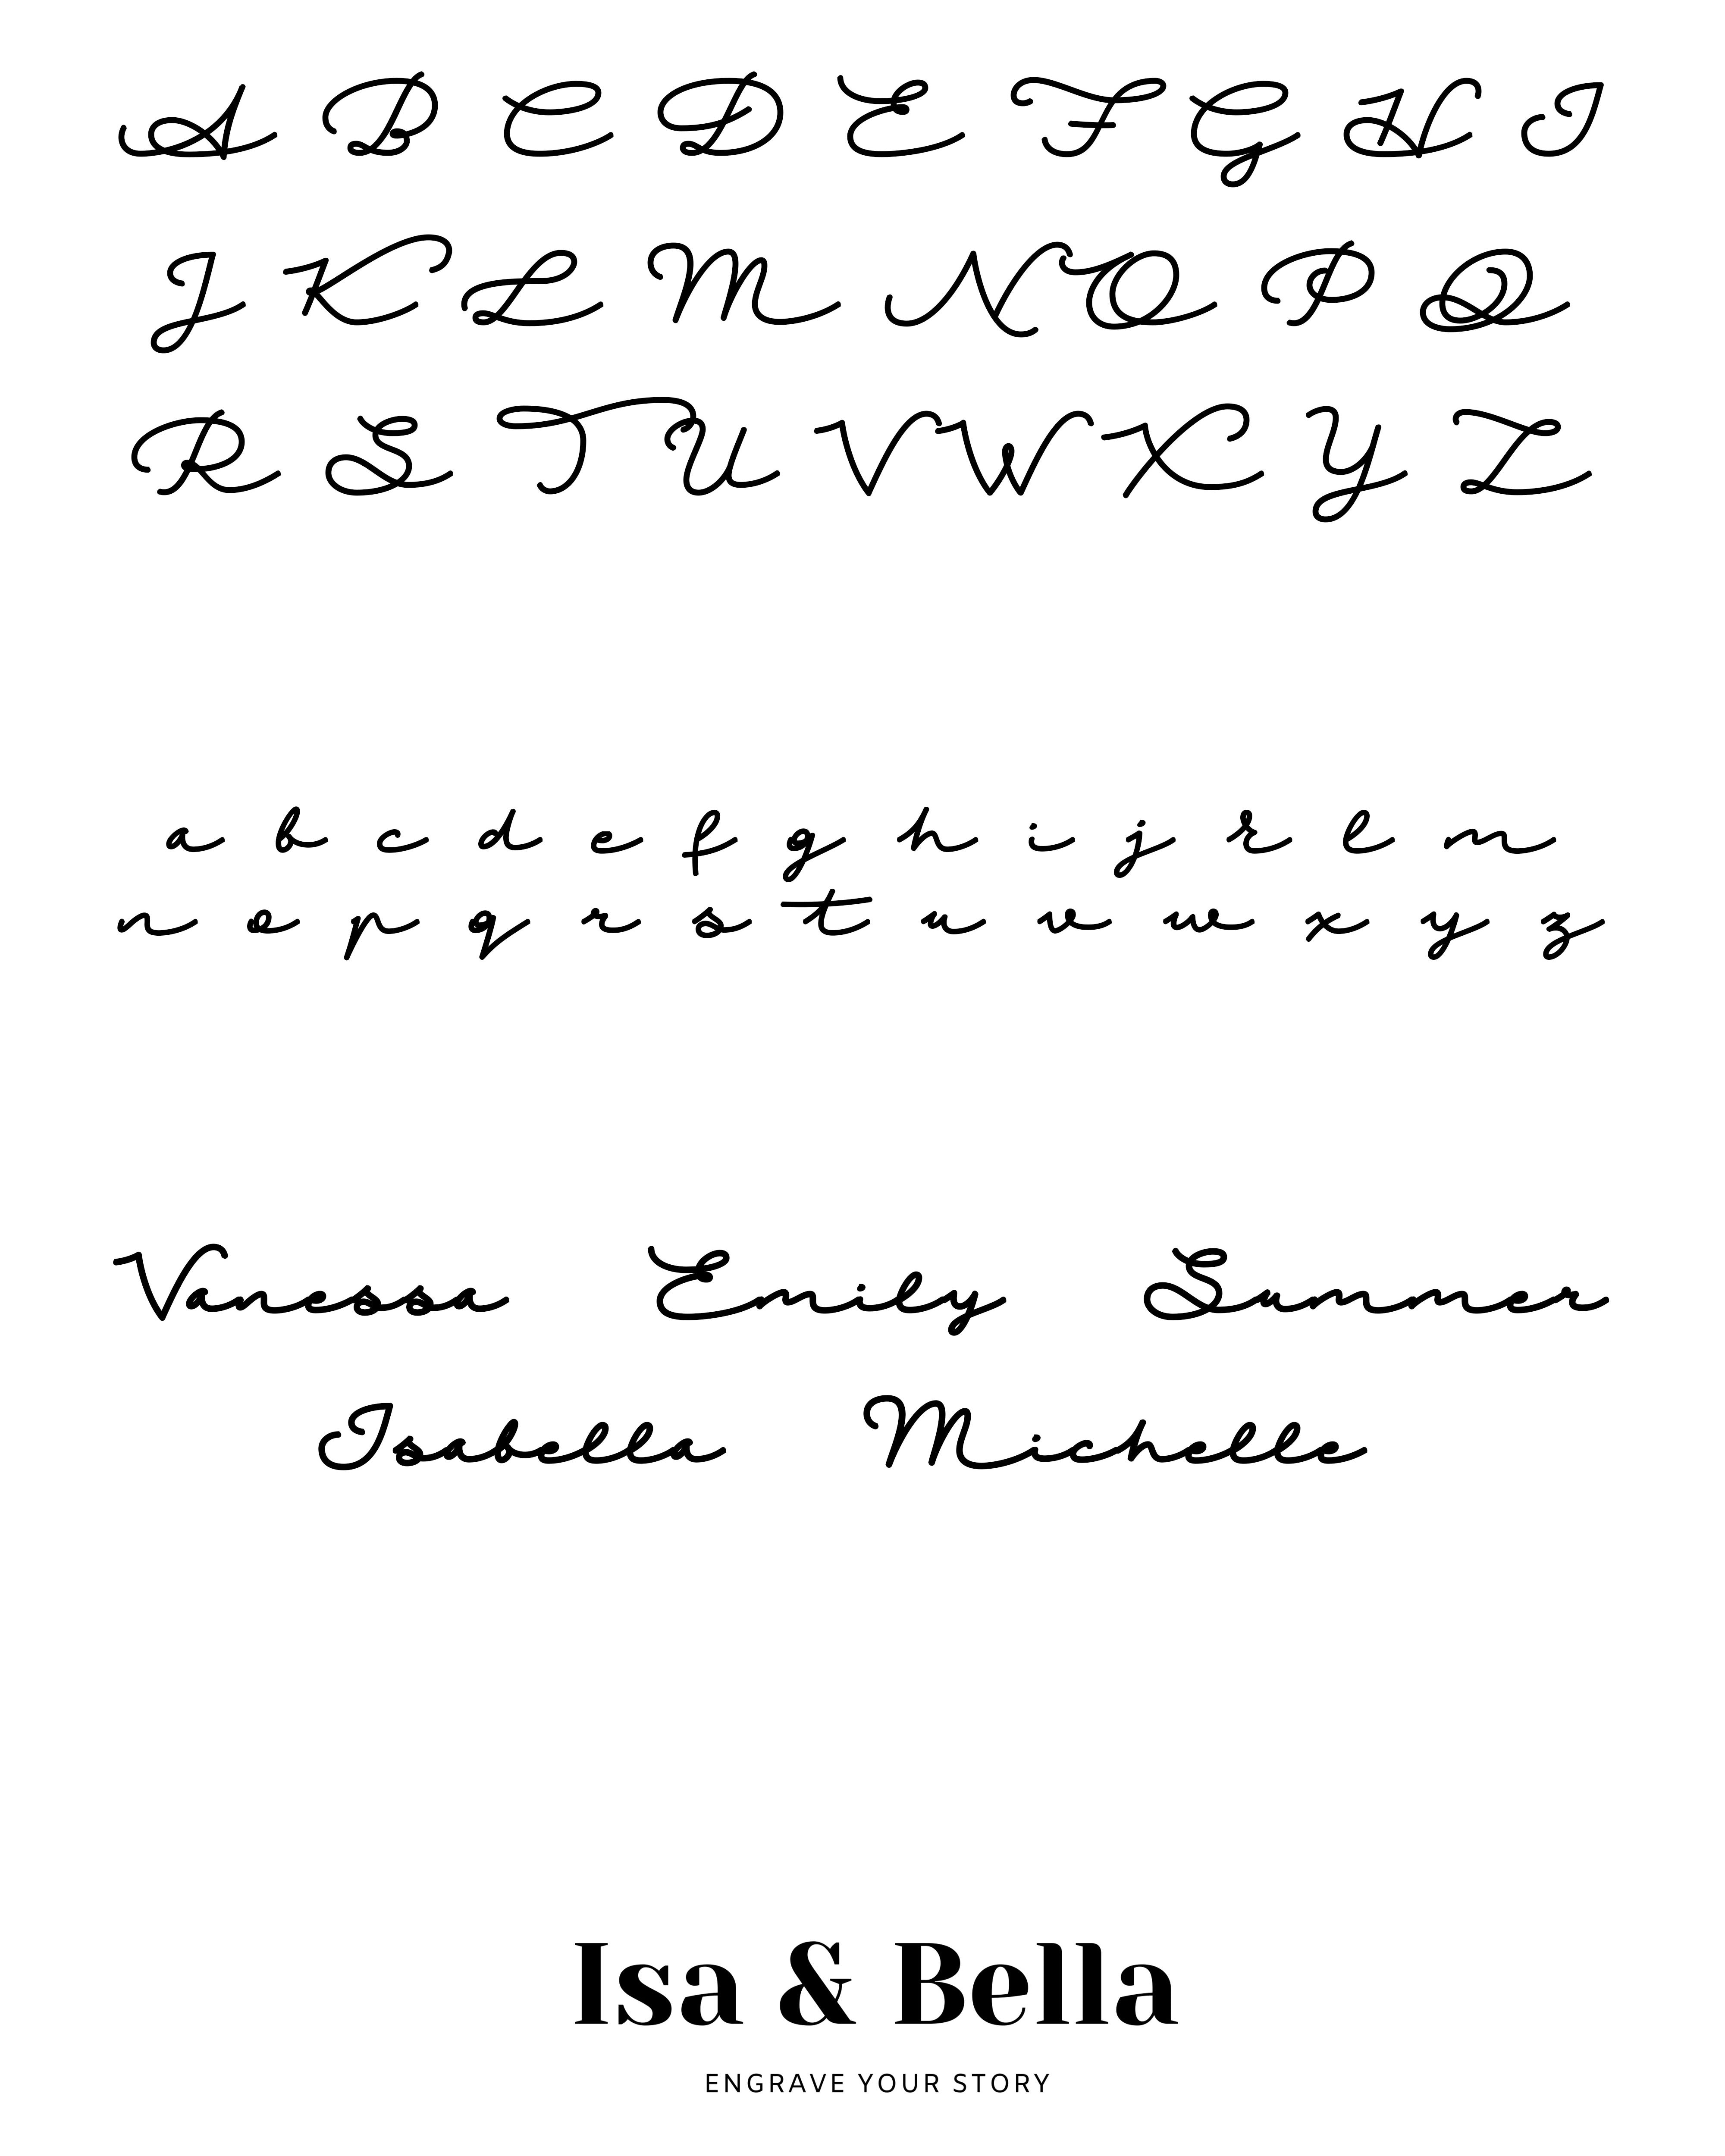 A B C D E F G H I
J K L M N O P Q
R S T U V W X Y Z
a b c d e f g h i j k l m
n o p q r s t u v w x y z
Vanessa Emily Summer
Isabella Michelle
Isa & Bella
ENGRAVE YOUR STORY